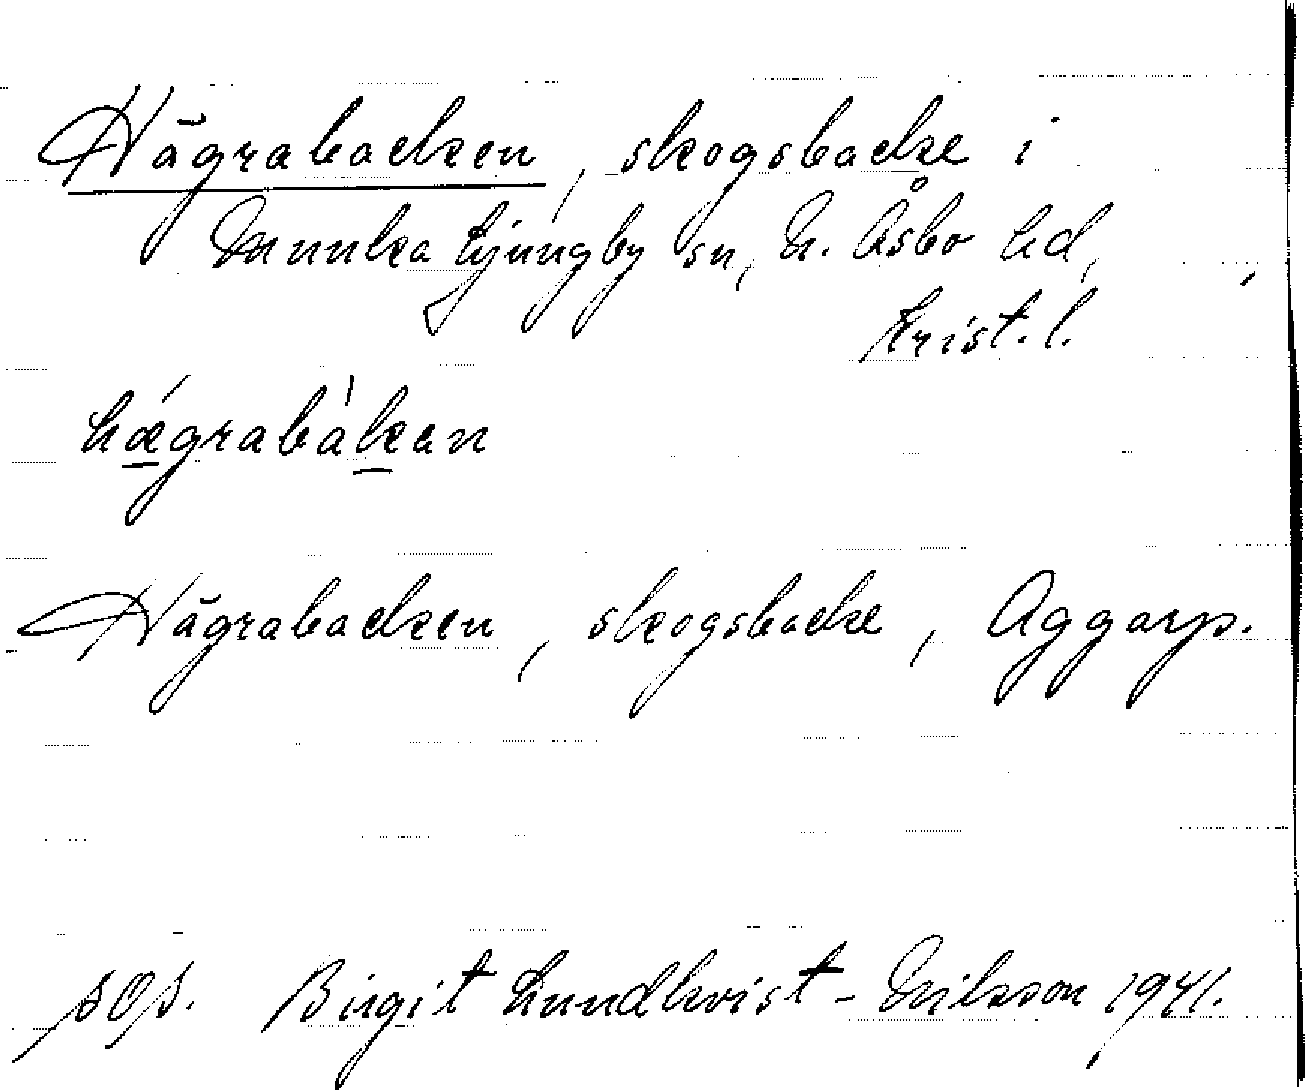 Hägrabacken, skogsbacke i
Munka Ljungby sn, N. Åsbo hd,
Krist. l.
hǽgrabàkan
Hägrabacken, skogsbacke, Aggarp.
pop. Birgit Lundkvist-Nilsson 1941.